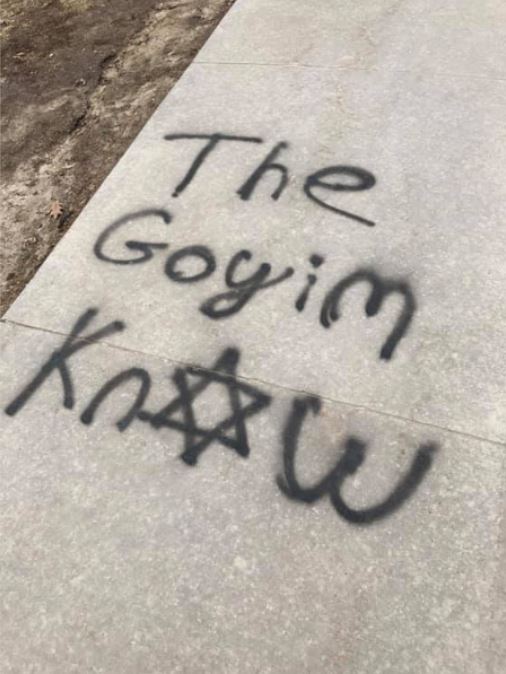 The
Goyim
Kn✡w